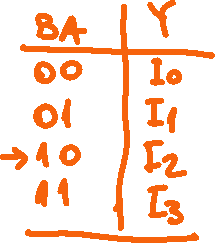 BA Y
00 I0
01 I1
→10 I2
11 I3